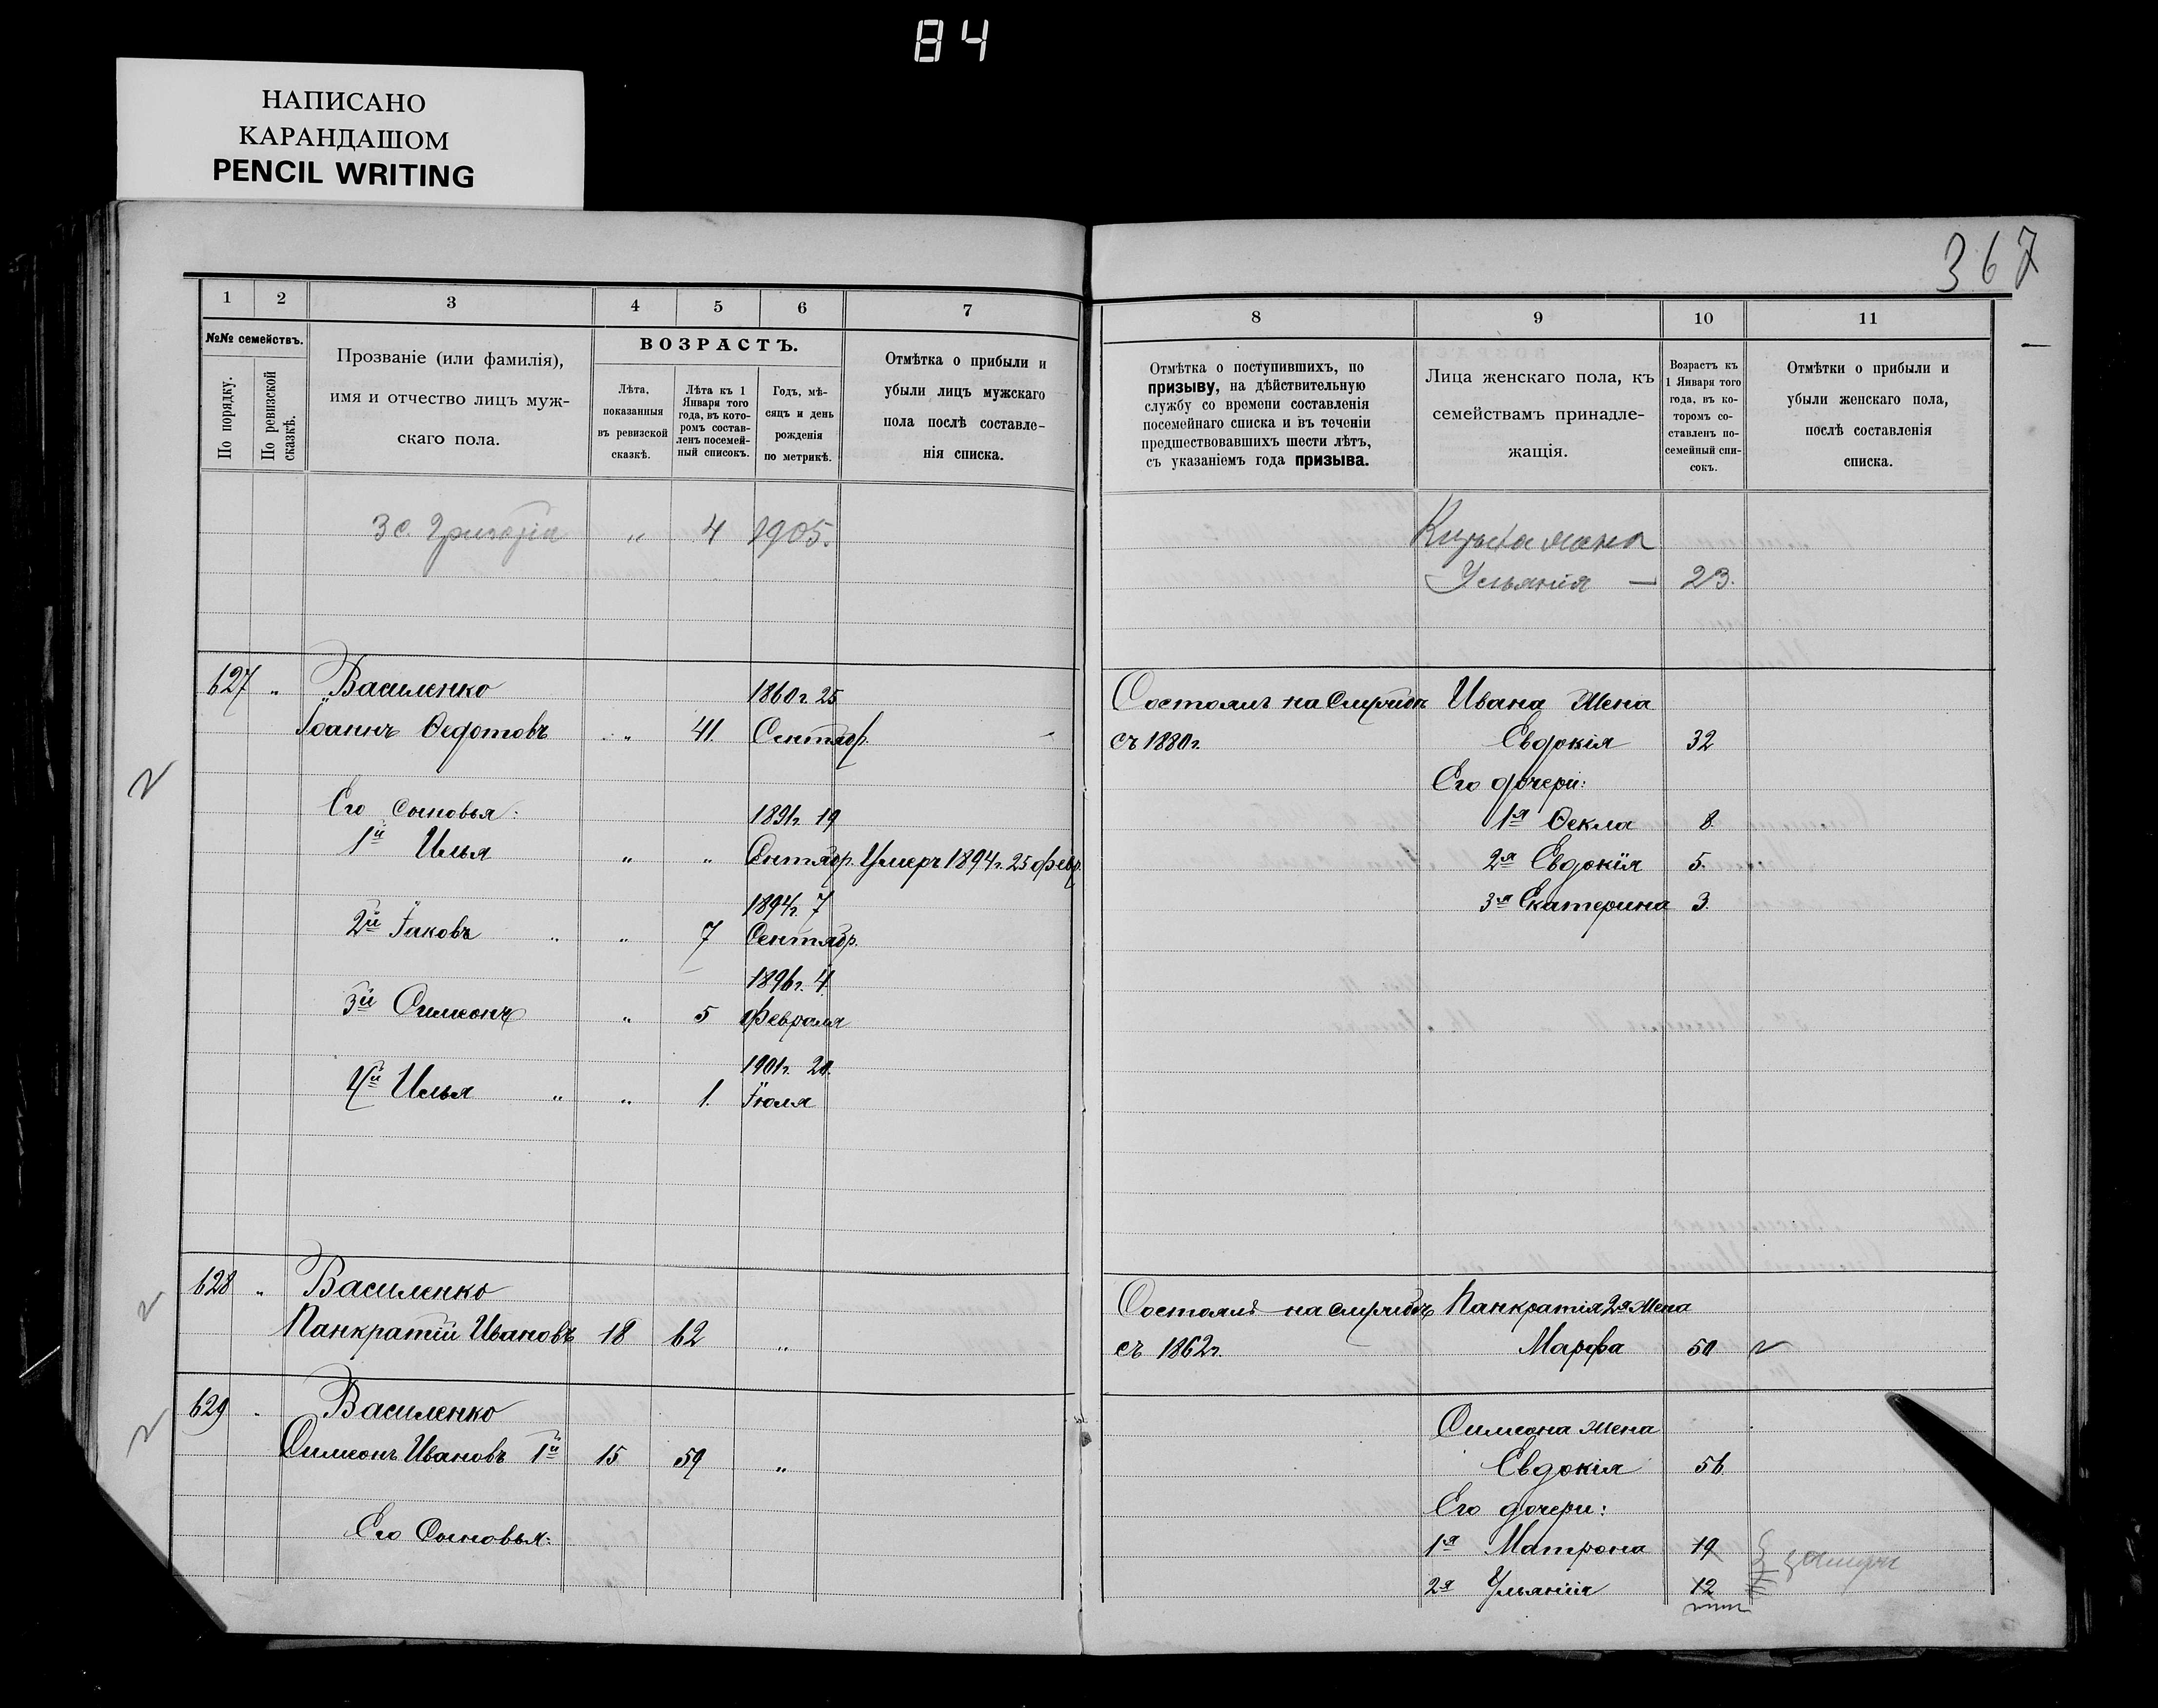 84
НАПИСАНО
КАРАНДАШОМ
PENCIL WRITING
367
1
2
3
4
5
6
7
№№ семействъ.
По порядку.
По ревизской сказкѣ.
Прозваніе (или фамилія),
имя и отчество лицъ муж-
скаго пола.
ВОЗРАСТЪ.
Лѣта,
показанныя
въ ревизской
сказкѣ.
Лѣта къ 1
Января того
года, въ кото-
ромъ состав-
ленъ посемей-
ный списокъ.
Годъ, мѣ-
сяцъ и день
рожденія
по метрикѣ.
Отмѣтка о прибыли и
убыли лицъ мужскаго
пола послѣ составле-
нія списка.
8
9
10
11
Отмѣтка о поступившихъ, по
призыву, на дѣйствительную
службу со времени составленія
посемейнаго списка и въ теченіи
предшествовавшихъ шести лѣтъ,
съ указаніемъ года призыва.
Лица женскаго пола, къ
семействамъ принадле-
жащія.
Возрастъ къ
1 Января того
года, въ ко-
торомъ со-
ставленъ по-
семейный спи-
сокъ.
Отмѣтки о прибыли и
убыли женскаго пола,
послѣ составленія
списка.
3 с. Григорій „ 4 1905.
жена
Ульянія — 23.
627 „ Василенко 1860 г. 25
Іоаннъ Ѳедотовъ „ 41. Сентябр.
Его сыновья: 1891 г. 19
1й Илья „ „ Сентябр. Умеръ 1894 г. 25 февр.
1894 г. 7
2й Іаковъ „ „ 7 Сентябр.
1896 г. 4.
3й Симеонъ „ 5 Февраля
1901 г. 20.
4й Илья „ „ 1. Іюля
Состоялъ на службѣ Ивана Жена
съ 1880 г. Евдокія 32
Его дочери:
1я Ѳекла 8.
2я Евдокія 5.
3я Екатерина 3.
628 „ Василенко
Панкратій Ивановъ 18 62 „
Состоялъ на службѣ Панкратія 2я Жена
съ 1862 г. Марфа 50
629 Василенко
Симеонъ Ивановъ 1й 15 59 „
Его Сыновья:
Симеона жена
Евдокія 56.
Его дочери:
1я Матрона 19
2я Ульянія 12